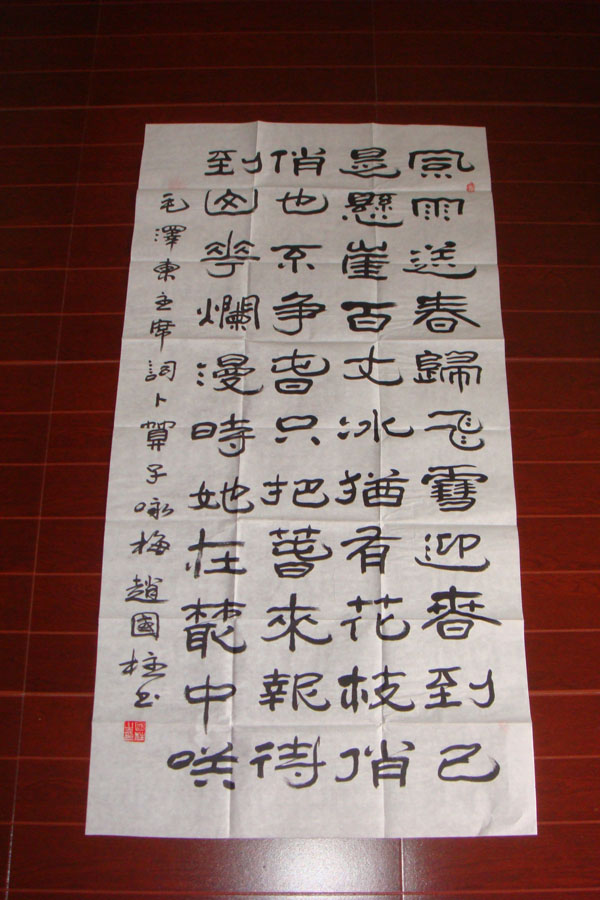 風雨送春歸飛雪迎春到已
是懸崖百丈冰猶有花枝俏
俏也不争春只把春來報待
到山花爛漫時她在叢中咲
毛澤東主席詞卜算子咏梅 趙國柱书